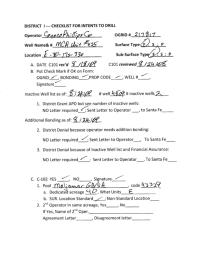 DISTRICT I ----CHECKLIST FOR INTENTS TO DRILL
Operator ConocoPhillips Co OGRID # 217817
Well Name& # MCA Unit #485 Surface Type F
Location Sub Surface Type
A. DATE C101 rec'd C101 reviewed
B. Put Check Mark if OK on Form:
OGRID , BONDING , PROP CODE , WELL #
Signature
Inactive Well list as of: # well # inactive wells
1. District Grant APD but see number of inactive wells:
NO Letter required ; Sent Letter to Operator , to Santa Fe
Additional Bonding as of:
2. District Denial because operator needs addition bonding:
NO Letter required ; Sent Letter to Operator To Santa Fe
3. District Denial because of Inactive Well list and Financial Assurance:
NO Letter required ; Sent Letter to Operator , To Santa Fe
C. C-102: YES , NO , Signature
1. Pool Maljamar GB/SA , code 43329
a. Dedicated acreage 40 , What Units E
b. SUR. Location Standard ; Non-Standard Location
2. 2nd Operator in same acreage, Yes , No
If Yes, Name of 2nd Oper.
Agreement Letter , Disagreement letter